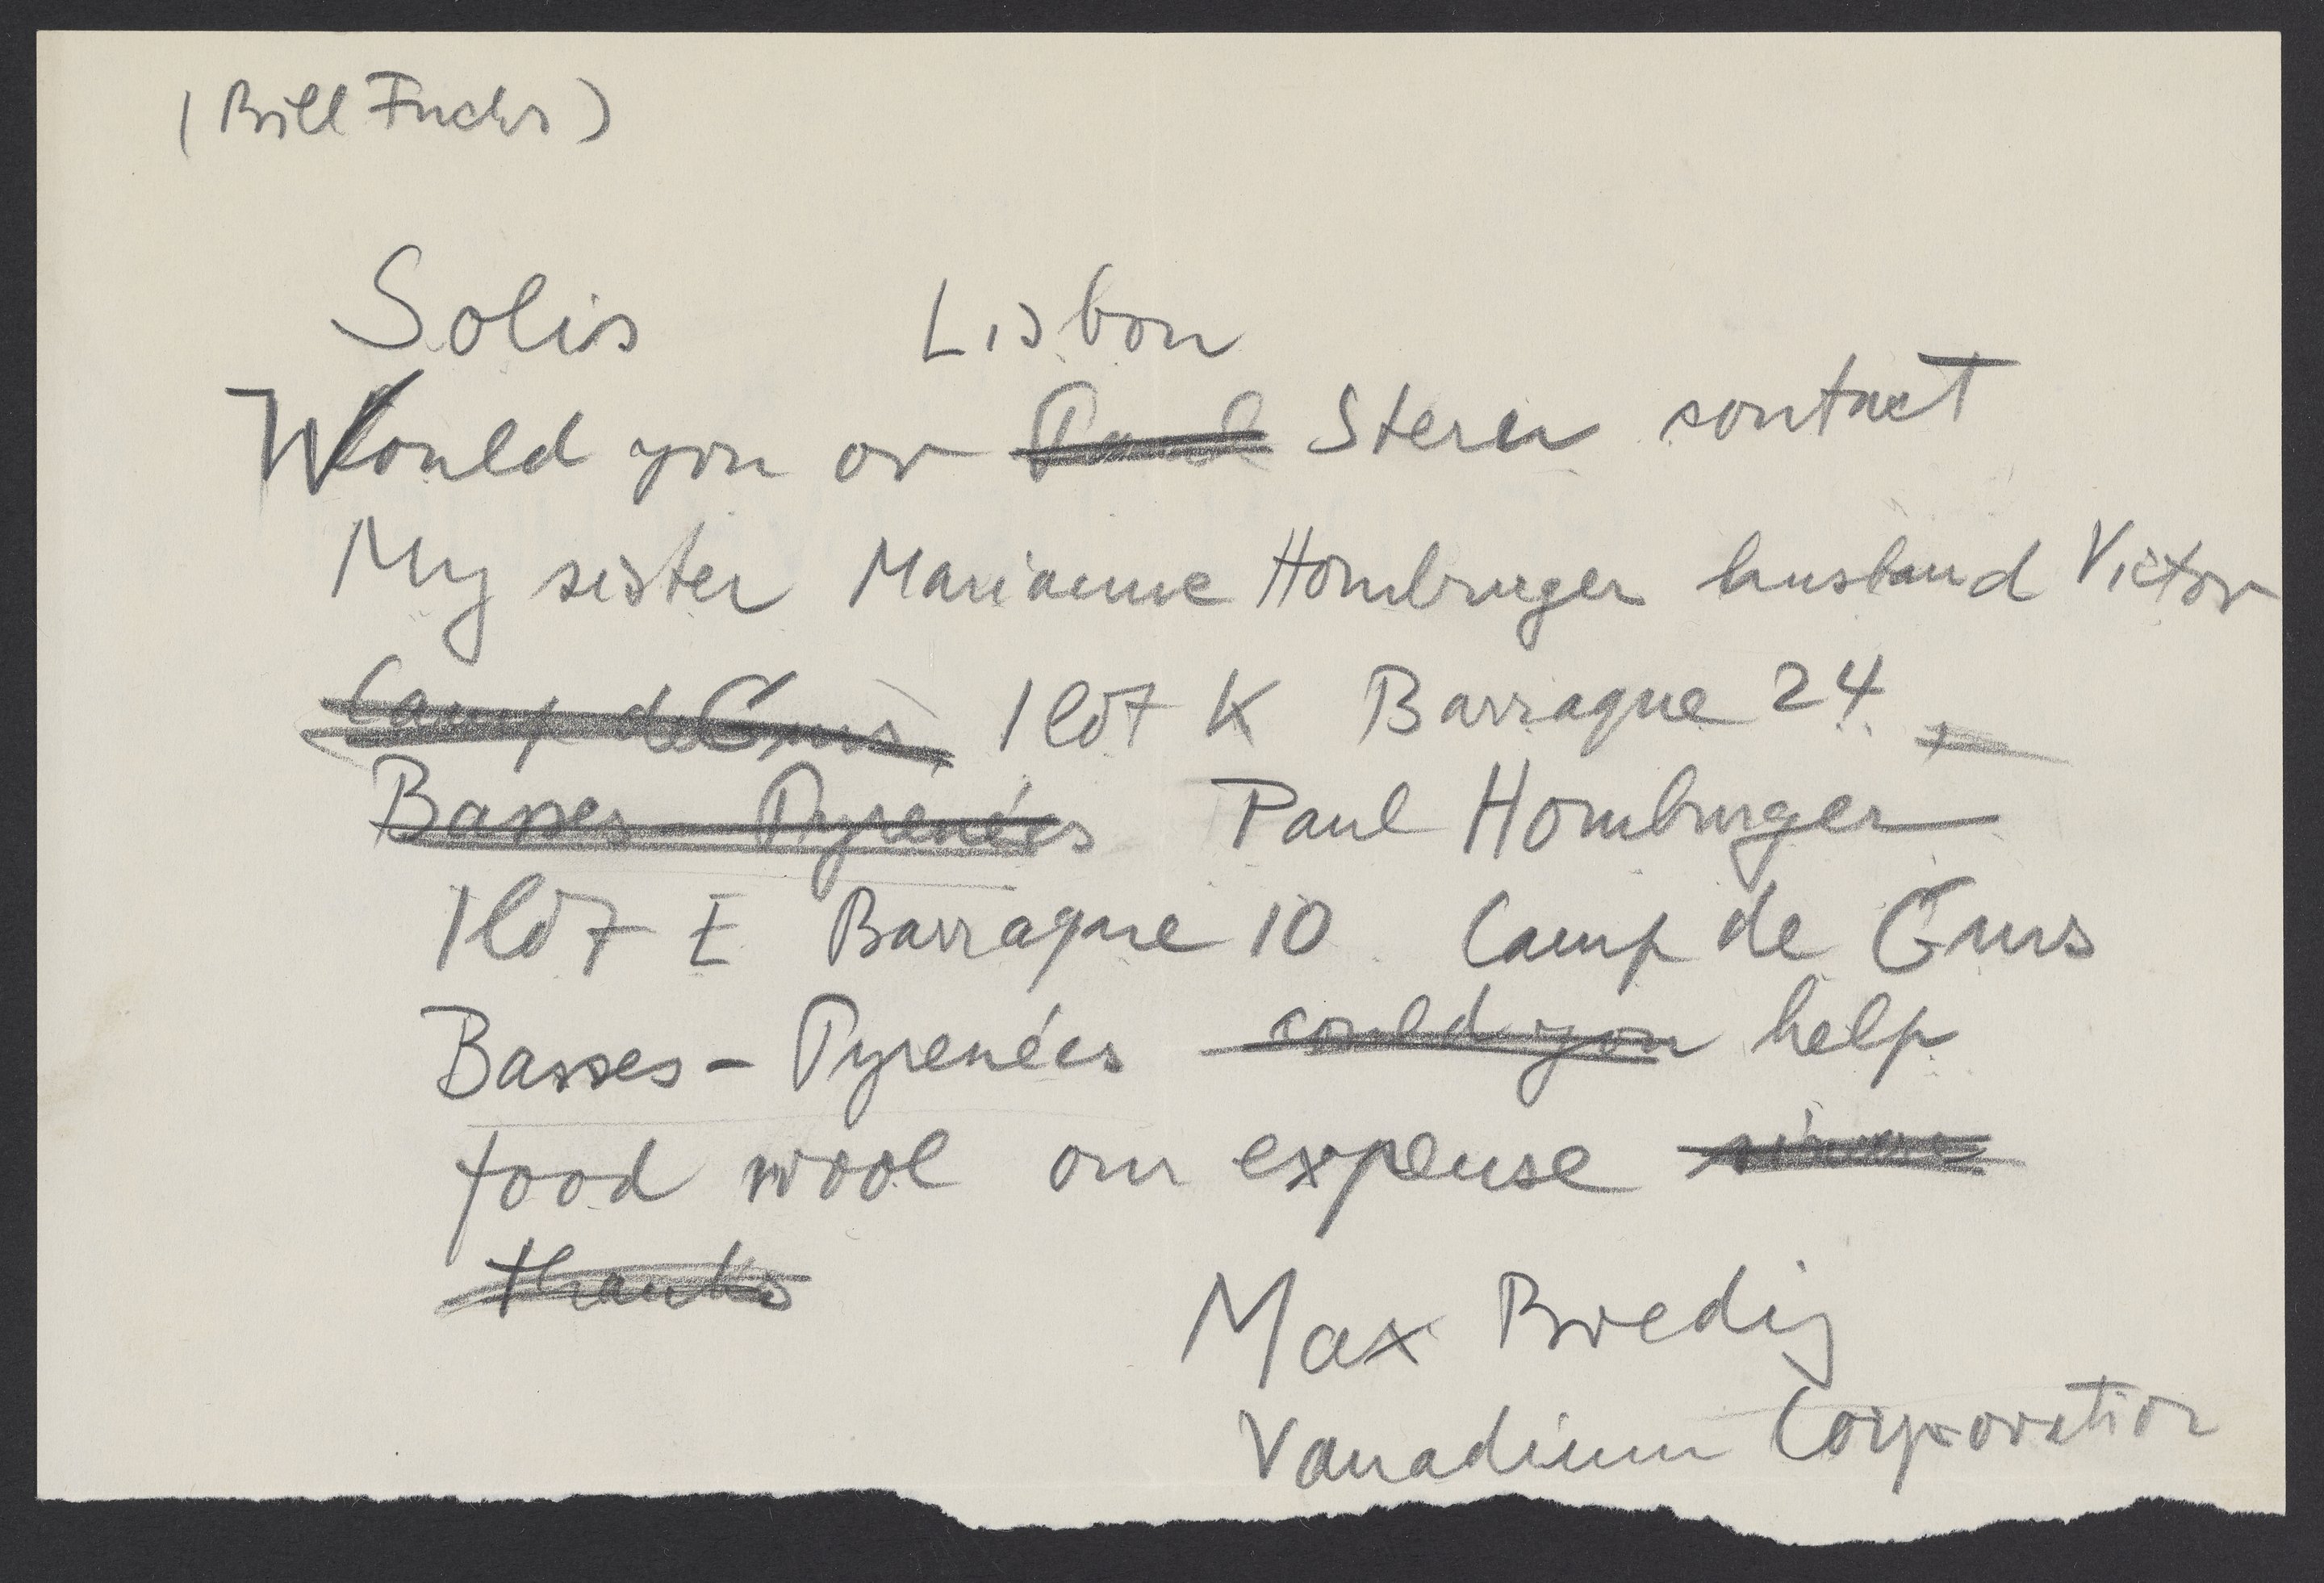 (Bill Fuchs)
Solis Lisbon
Would you or Paul Stern contact
My sister Marianne Homburger husband Victor
Camp de Gurs, Ilôt K Barraque 24
Basses-Pyrenées Paul Homburger
Ilôt E Barraque 10 Camp de Gurs
Basses-Pyrenées could you help
food wool our expense
thanks
Max Bredig
Vanadium Corporation